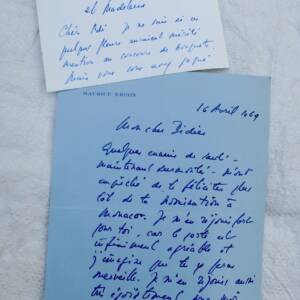 et Madeleine
Cher Ami Je ne sais si ces
quelques fleurs auraient mérité
mention au concours de bouquets
Mais vous vous avez gagné
MAURICE DRUON
16 Avril 1969
Mon cher Didier
Quelques ennuis de santé -
maintenant surmontés - m'ont
empêché de te féliciter plus
tôt de ta nomination à
Monaco. Je m'en réjouis fort
pour toi, car le poste est
infiniment agréable et
j'imagine que tu y feras
merveille. Je m'en réjouis aussi
très égoïstement pour moi